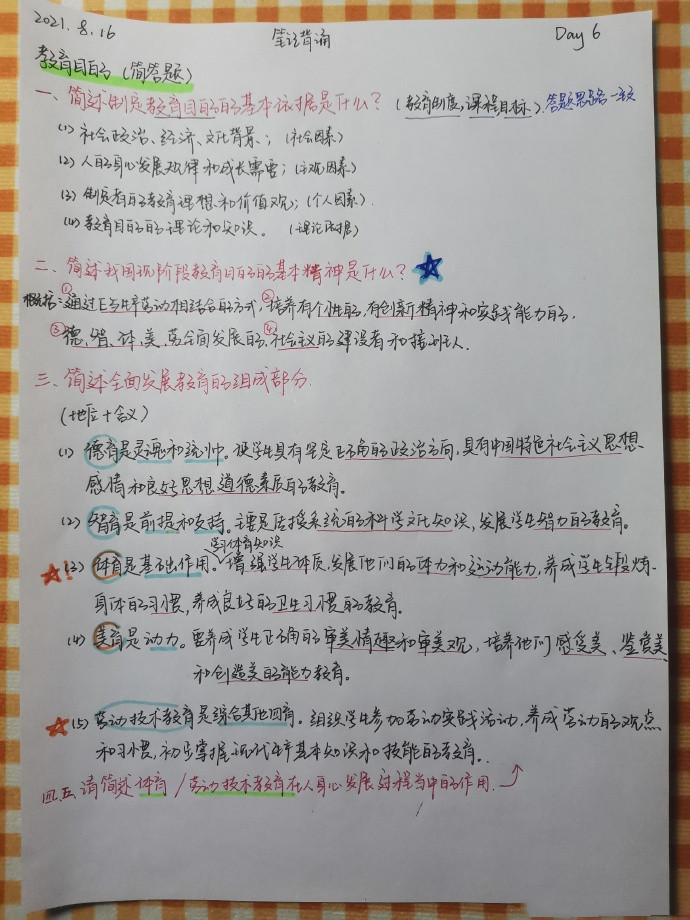 2021.8.16 笔记背诵 Day 6
教育目的（简答题）
一、简述制定教育目的的基本依据是什么？（教育制度，课程目标）.答题思路一致
(1) 社会政治、经济、文化背景；（社会因素）
(2) 人的身心发展规律和成长需要；（主观因素）
(3) 制定者的教育理想和价值观；（个人因素）.
(4) 教育目的的理论和知识。（理论依据）
二、简述我国现阶段教育目的的基本精神是什么？
概括：①通过正与生产劳动相结合的方式，②培养有个性的，有创新精神和实践能力的，
③德、智、体、美、劳全面发展的，④社会主义的建设者和接班人.
三、简述全面发展教育的组成部分.
（地位＋含义）
(1) 德育是灵魂和统帅。使学生具有坚定正确的政治方向，具有中国特色社会主义思想、
感情和良好思想道德素质的教育。
(2) 智育是前提和支持。主要是传授系统的科学文化知识，发展学生智力的教育。
学习体育知识
(3) 体育是基础作用。增强学生体质，发展他们的体力和运动能力，养成学生锻炼
身体的习惯，养成良好的卫生习惯的教育。
(4) 美育是动力。要养成学生正确的审美情趣和审美观，培养他们感受美、鉴赏美
和创造美的能力教育。
(5) 劳动技术教育是综合其他四育。组织学生参加劳动实践活动，养成劳动的观点
和习惯，初步掌握现代生产基本知识和技能的教育。
四.五 请简述体育/劳动技术教育在人身心发展过程当中的作用.